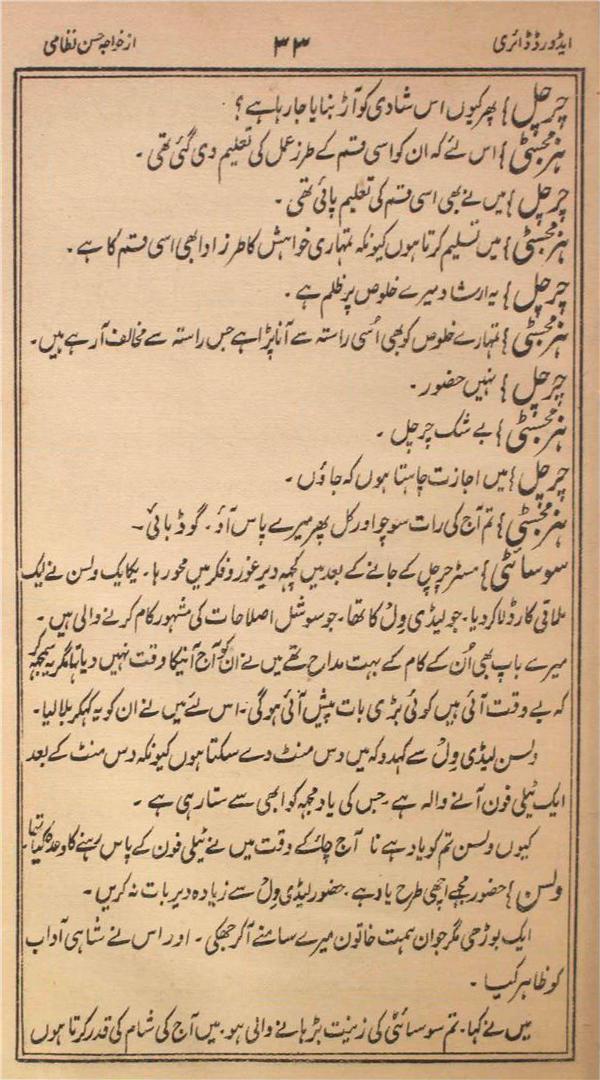 ایڈورڈ ڈائری ۳۳ از خواجہ حسن نظامی
چرچل} پھر کیوں اس شادی کو آڑ بنایا جا رہا ہے؟
ہز مجسٹی} اس لئے کہ ان کو اسی قسم کے طرز عمل کی تعلیم دی گئی تھی ۔
چرچل} میں نے بھی اسی قسم کی تعلیم پائی تھی ۔
ہز مجسٹی} میں تسلیم کرتا ہوں کیونکہ تمہاری خواہش کا طرز ادا بھی اسی قسم کا ہے ۔
چرچل} یہ ارشاد میرے خلوص پر ظلم ہے ۔
ہز مجسٹی} تمہارے خلوص کو بھی اُسی راستہ سے آنا پڑا ہے جس راستہ سے مخالف آ رہے ہیں۔
چرچل} نہیں حضور ۔
ہز مجسٹی} بے شک چرچل ۔
چرچل} میں اجازت چاہتا ہوں کہ جاؤں ۔
ہز مجسٹی} تم آج کی رات سوچو اور کل پھر میرے پاس آؤ ۔ گوڈ بائی ۔
سوسائٹی} مسٹر چرچل کے جانے کے بعد میں کچھ دیر غور و فکر میں محو رہا ۔ یکایک ولسن نے ایک
ملاقاتی کارڈ لا کر دیا ۔ جو لیڈی وِل کا تھا ۔ جو سوشل اصلاحات کی مشہور کام کرنے والی ہیں ۔
میرے باپ بھی اُن کے کام کے بہت مداح تھے میں نے ان کو آج آنیکا وقت نہیں دیا تھا مگر یہ سمجھ کر
کہ بے وقت آئی ہیں کوئی بڑی بات پیش آئی ہوگی ۔ اس لئے میں نے ان کو یہ کہکر بلا لیا ۔
ولسن لیڈی وِل سے کہدو کہ میں دس منٹ دے سکتا ہوں کیونکہ دس منٹ کے بعد
ایک ٹیلی فون آنے والہ ہے جس کی یاد مجہہ کو ابھی سے ستا رہی ہے ۔
کیوں ولسن تم کو یاد ہے نا آج چائے کے وقت میں نے ٹیلی فون کے پاس رہنے کا وعدہ کیا تھا ۔
ولسن} حضور مجھے اچھی طرح یاد ہے ۔ حضور لیڈی وِل سے زیادہ دیر بات نہ کریں ۔
ایک بوڑھی مگر جوان ہمت خاتون میرے سامنے آ کر جھکی ۔ اور اس نے شاہی آداب
کو ظاہر کیا ۔
میں نے کہا ۔ تم سوسائٹی کی زینت بڑھانے والی ہو ۔ میں آج کی شام کی قدر کرتا ہوں